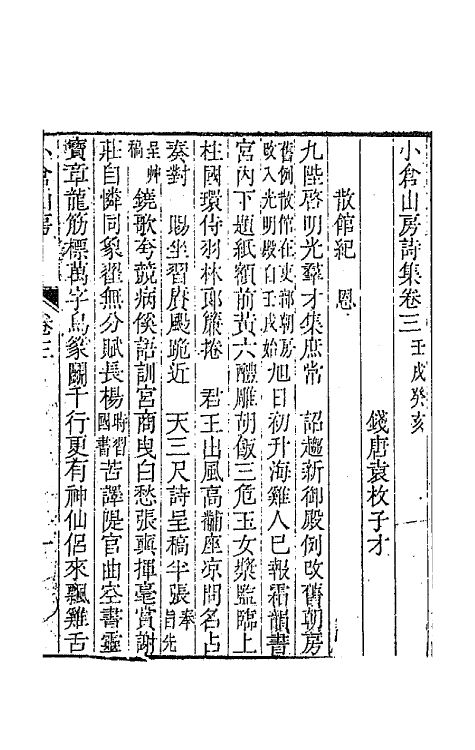 小倉山房詩集卷三 壬戌癸亥
錢唐袁枚子才
散館紀 恩
九陛啓明光羣才集庶常 詔趨新御殿例改舊朝房
舊例散館在吏部朝房
改入光明殿自壬戌始旭日初升海雞人已報霜韻書
宮內下題紙額前黃六醴雕胡飯三危玉女漿監臨上
柱國環侍羽林郎簾捲 君王出風高黼座凉問名占
奏對 賜坐習賡颺跪近 天三尺詩呈稿半張奉旨先
呈艸稿 鐃歌夸競病傒語訓宮商曳白愁張奭揮毫賞謝
莊自憐同象翟無分賦長楊時習國書苦譯隄官曲空書靈
寶章龍筋標萬字鳥篆鬭千行更有神仙侶來飄雞舌
小倉山房
卷三
一